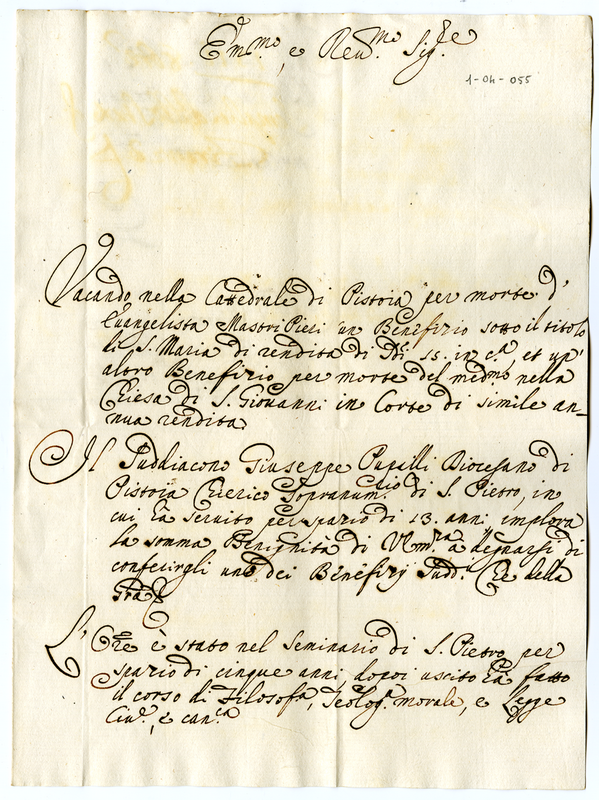 Em.mo, e Reu.mo Sig.re
1-04-055
Vacando nella Cattedrale di Pistoia per morte d'
Euangelista Mastri Pieri un Benefizio sotto il titolo
di S. Maria di rendita di 15. in c.a, et un'
altro Benefizio per morte del med.mo nella
Chiesa di S. Giouanni in Corte di simile an-
nua rendita
Il Suddiacono Giuseppe Pupilli Diocesano di
Pistoia Cherico Sopranum.rio di S. Pietro, in
cui hà seruito per spazio di 13. anni, implora
la somma Benignità di V. Em.za à degnarsi di
conferirgli uno dei Benefizj Sudd.i Che della
Grã
L'Ore è stato nel Seminario di S. Pietro per
spazio di cinque anni, dopoi uscito hà fatto
il corso di Filosof.a, Teolog.a morale, e Legge
Ciu.e, e can.ca